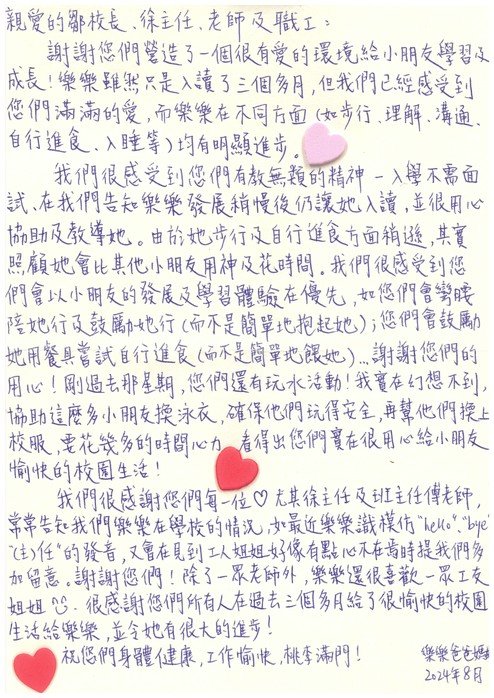 親愛的鄒校長、徐主任、老師及職工：
謝謝您們營造了一個很有愛的環境給小朋友學習及
成長！樂樂雖然只是入讀了三個多月，但我們已經感受到
您們滿滿的愛，而樂樂在不同方面（如步行、理解、溝通、
自行進食、入睡等）均有明顯進步。
我們很感受到您們有教無類的精神－入學不需面
試、在我們告知樂樂發展稍慢後仍讓她入讀，並很用心
協助及教導她。由於她步行及自行進食方面稍遜，其實
照顧她會比其他小朋友用神及花時間。我們很感受到您
們會以小朋友的發展及學習體驗在優先，如您們會彎腰
陪她行及鼓勵她行（而不是簡單地抱起她）；您們會鼓勵
她用餐具嘗試自行進食（而不是簡單地餵她）...謝謝您們的
用心！剛過去那星期，您們還有玩水活動！我實在幻想不到，
協助這麼多小朋友換泳衣，確保他們玩得安全，再幫他們換上
校服，要花幾多的時間心力，看得出您們實在很用心給小朋友
愉快的校園生活！
我們很感謝您們每一位♡尤其徐主任及班主任傅老師，
常常告知我們樂樂在學校的情況，如最近樂樂識模仿"hello"、"bye"
"（主）任"的發音，又會在見到工人姐姐好像有點心不在焉時提我們多
加留意。謝謝您們！除了一眾老師外，樂樂還很喜歡一眾工友
姐姐。很感謝您們所有人在過去三個多月給了很愉快的校園
生活給樂樂，並令她有很大的進步！
祝您們身體健康，工作愉快，桃李滿門！
樂樂爸爸媽媽
2024年8月